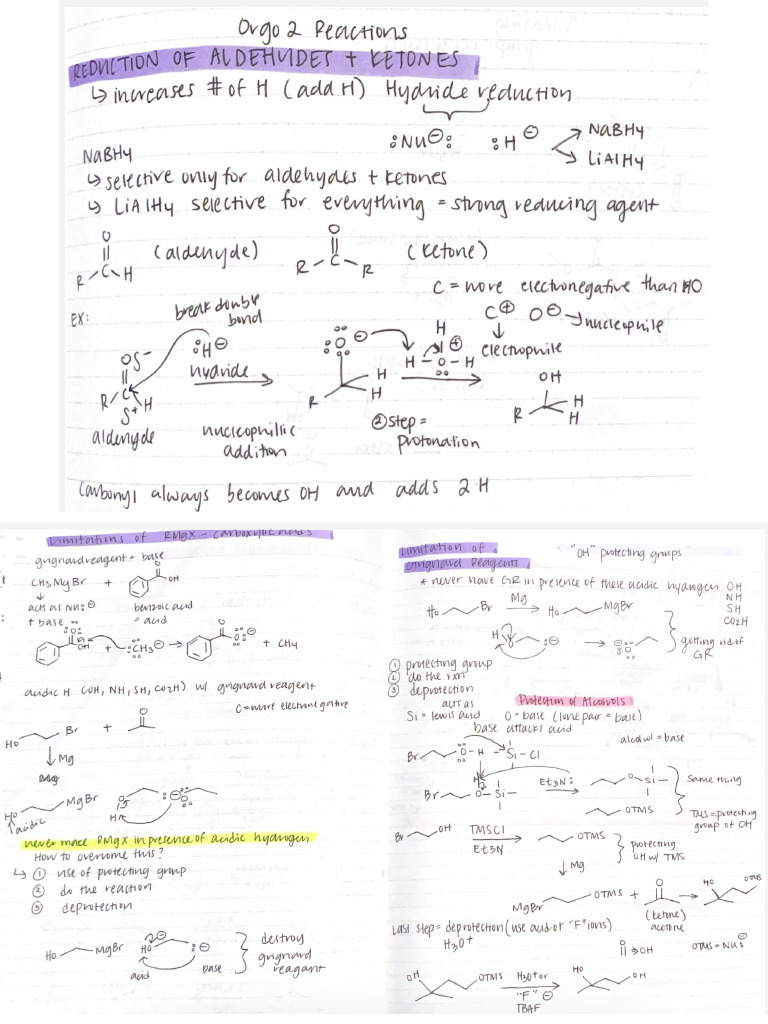 Orgo 2 Reactions
REDUCTION OF ALDEHYDES + KETONES
↳ increases # of H (add H) Hydride reduction
:Nu⊖: :H⊖ NaBH4
LiAlH4
NaBH4
↳ selective only for aldehydes + ketones
↳ LiAlH4 selective for everything = strong reducing agent
O O
R C H (aldehyde) R-C-R (ketone)
C = more electronegative than HO
EX: break double bond C⊕ O⊖ → nucleophile
electrophile
Oδ- :H⊖ :O:⊖ H
H-O-H ⊕ OH
R C H hydride R H H R H H
δ+
aldehyde nucleophillic addition ② step = protonation
Carbonyl always becomes OH and adds 2 H
Limitations of RMgX - carboxylic acids
grignard reagent = base
CH3MgBr + O OH
acts as Nu:⊖ benzoic acid
+ base = acid
OH + :CH3⊖ → O:⊖ + CH4
acidic H (OH, NH, SH, CO2H) w/ grignard reagent
C = more electronegative
HO Br + O
↓ Mg
HO MgBr
acidic
never make RMgX in presence of acidic hydrogen
How to overcome this?
↳ ① use of protecting group
② do the reaction
③ deprotection
HO MgBr HO :⊖ destroy
grignard
acid base reagant
Limitation of "OH" protecting groups
Grignard Reagents
* never have GR in presence of these acidic hydrogen OH
NH
SH
CO2H
HO Br Mg → HO MgBr
getting rid of
GR
① protecting group
② do the rxn
③ deprotection
Protection of Alcohols
acts as
Si = lewis acid O = base (lone pair = base)
base attacks acid
alcohol = base
Br O-H Si-Cl
Br O-Si- Et3N: O-Si- Same thing
OTMS TMS = protecting
group of OH
Br OH TMSCl OTMS protecting
Et3N OH w/ TMS
↓ Mg
MgBr OTMS + O → HO OTMS
(ketone)
acetone
Last step = deprotection (use acid or "F" ions)
H3O+
=> OH OTMS = Nu:⊖
OH OTMS H3O+ or HO OH
"F"⊖
TBAF